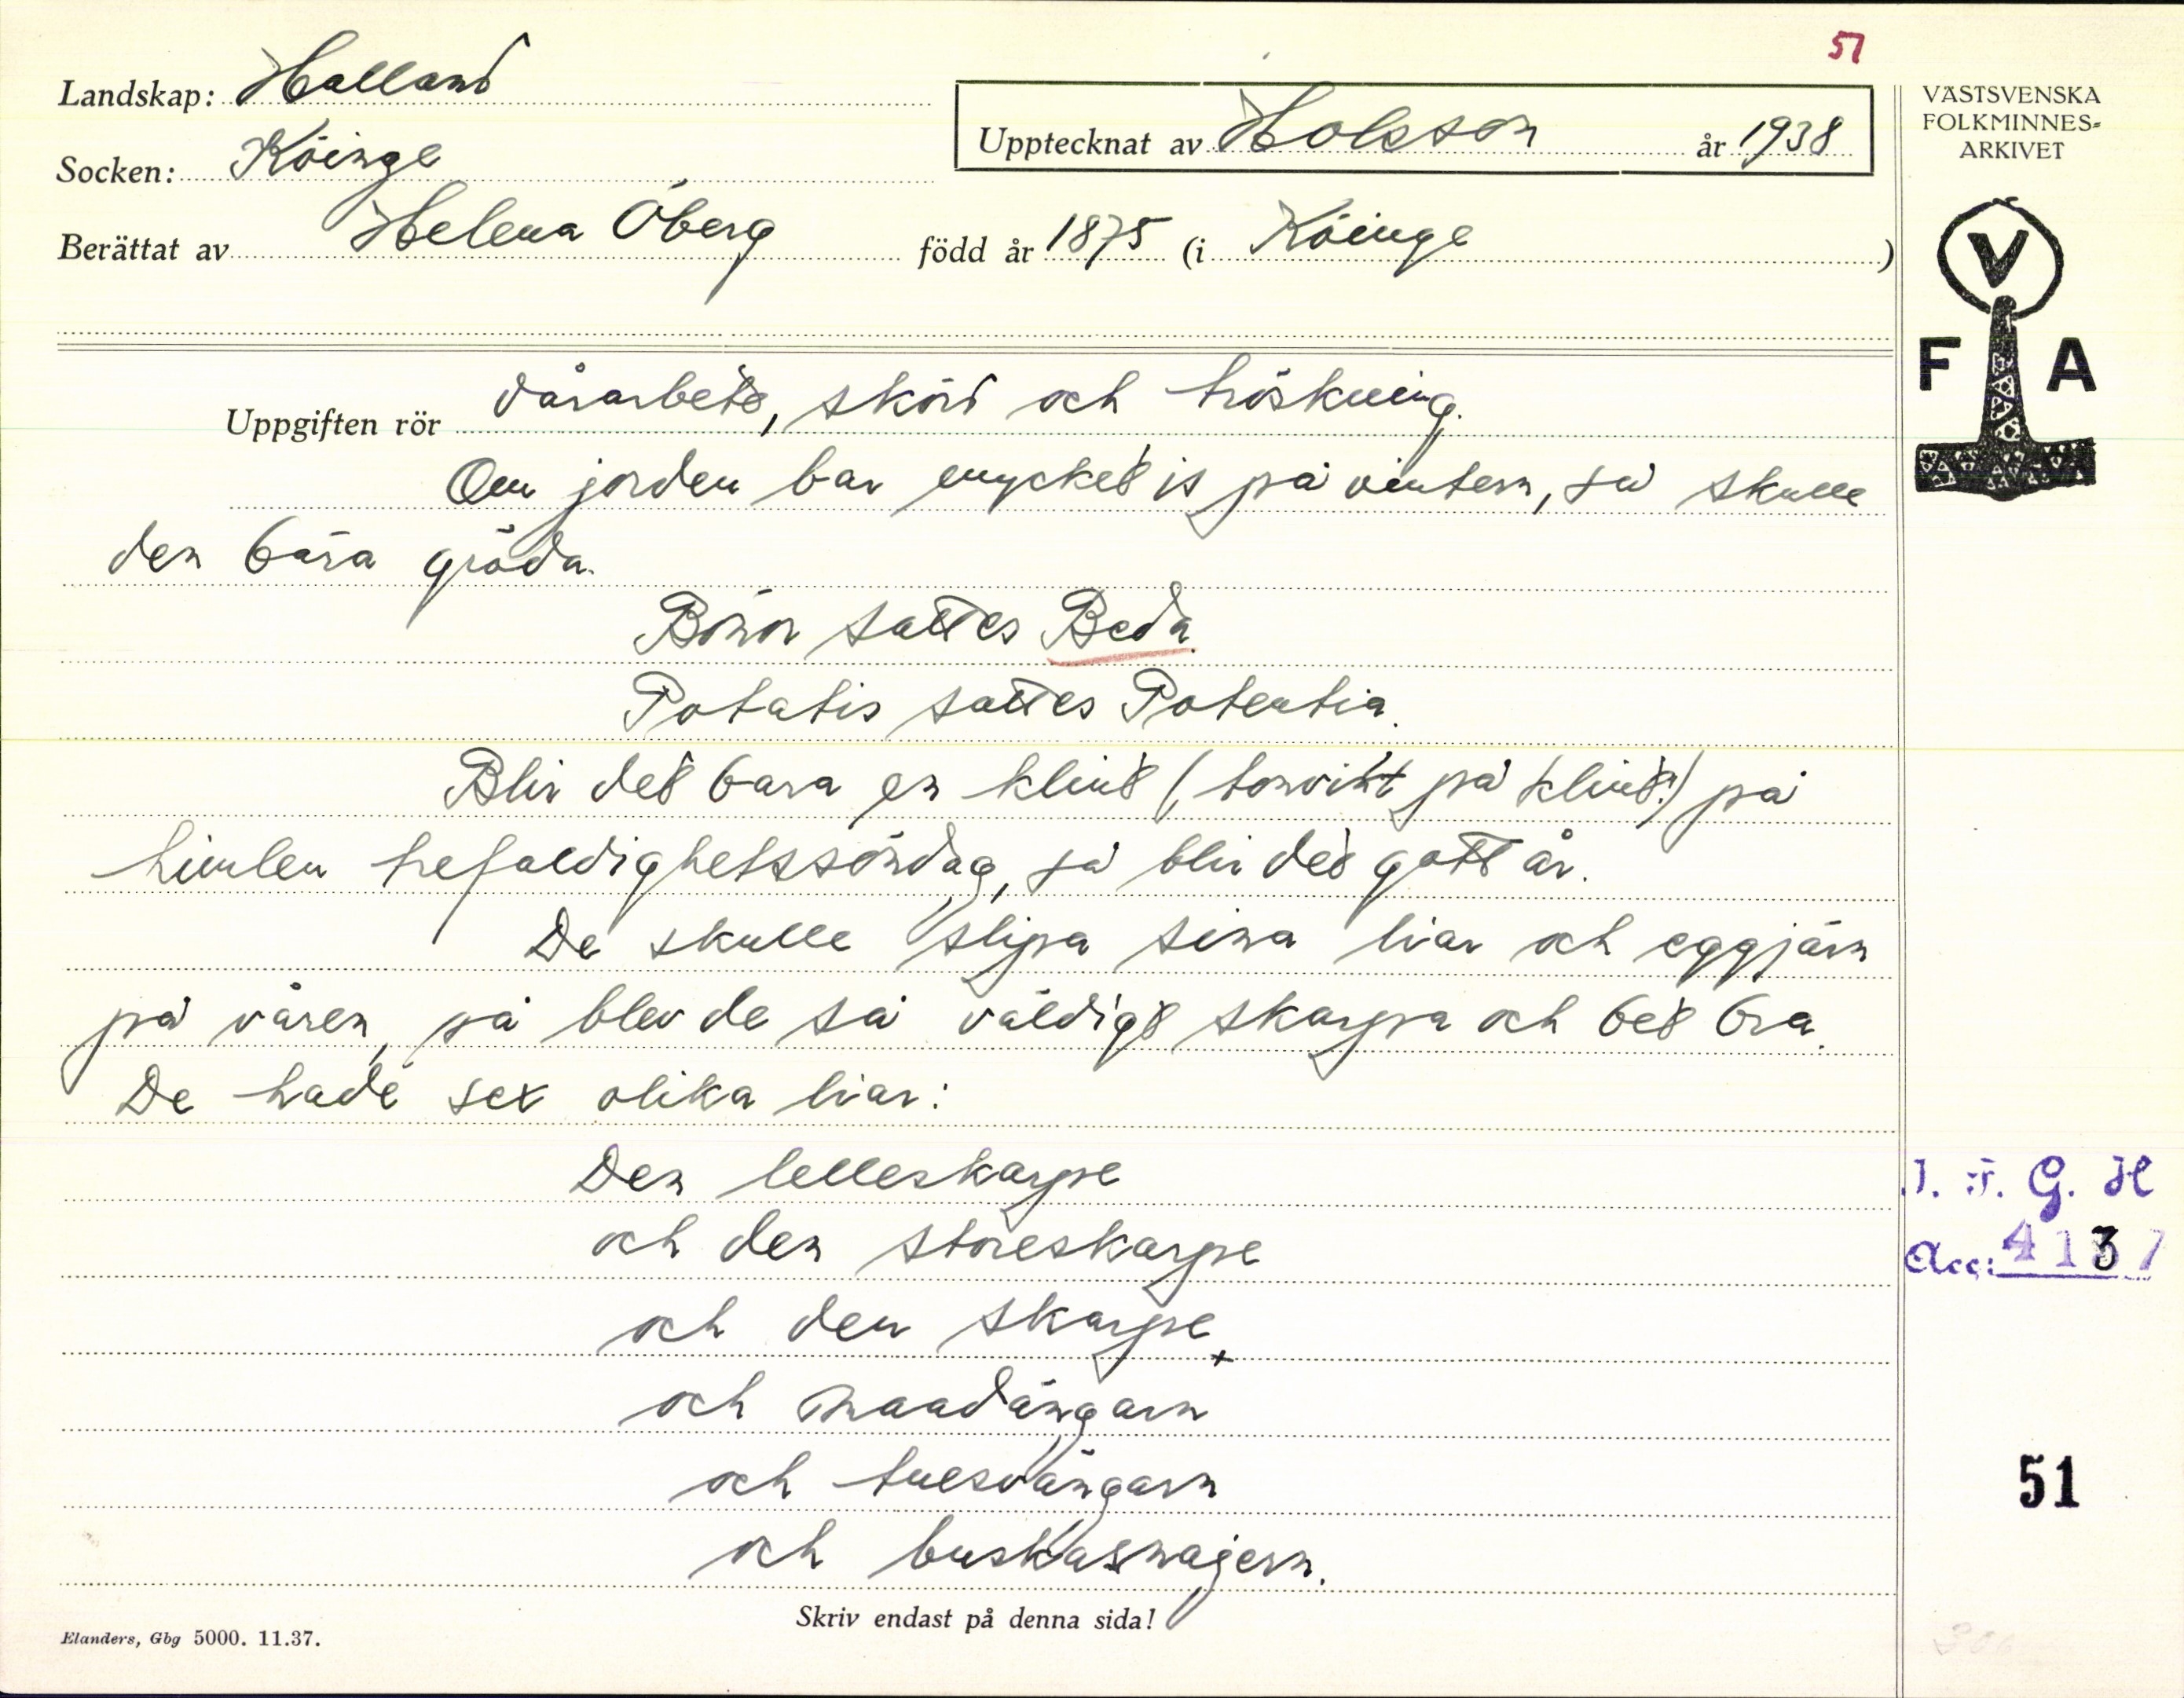 51
Landskap: Halland
Socken: Köinge
Upptecknat av Holsson år 1938
Berättat av Helena Öberg född år 1875 (i Köinge )
VÄSTSVENSKA
FOLKMINNES-
ARKIVET
V
F A
Uppgiften rör vårarbete, skörd och tröskning.
Om jorden bar mycket is på vintern, så skulle
den bära gröda.
Bönor sattes Beda.
Potatis sattes Potentia.
Blir det bara en klint ( på klint!) på
himlen trefaldighetssöndag, så blir det gott år.
De skulle slipa sina liar och eggjärn
på våren, så blev de så väldigt skarpa och bet bra.
De hade sex olika liar:
Den lelleskarpe
och den storeskarpe
och den skarpe
och maadängarn
och tuesvängarn
och buskasnajern.
I. F. G. H
Acc: 4137
51
Skriv endast på denna sida!
Elanders, Gbg 5000. 11.37.